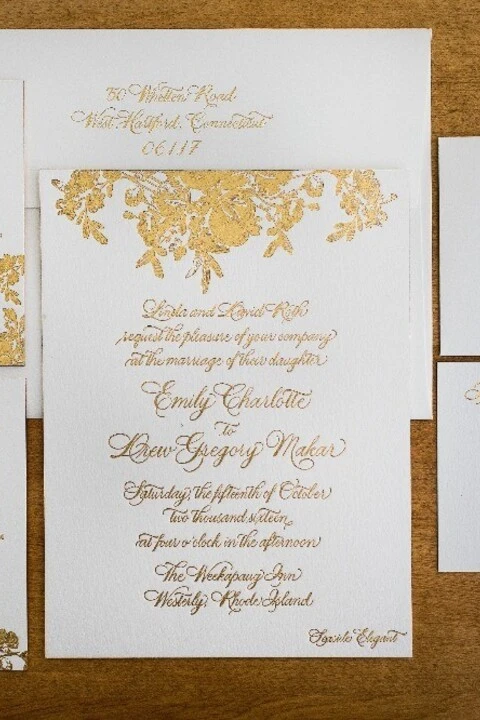 50 Whetten Road
West Hartford, Connecticut
06117
Linda and David Roth
request the pleasure of your company
at the marriage of their daughter
Emily Charlotte
to
Drew Gregory Makar
Saturday, the fifteenth of October
two thousand sixteen
at four o'clock in the afternoon
The Weekapaug Inn
Westerly, Rhode Island
Elegant